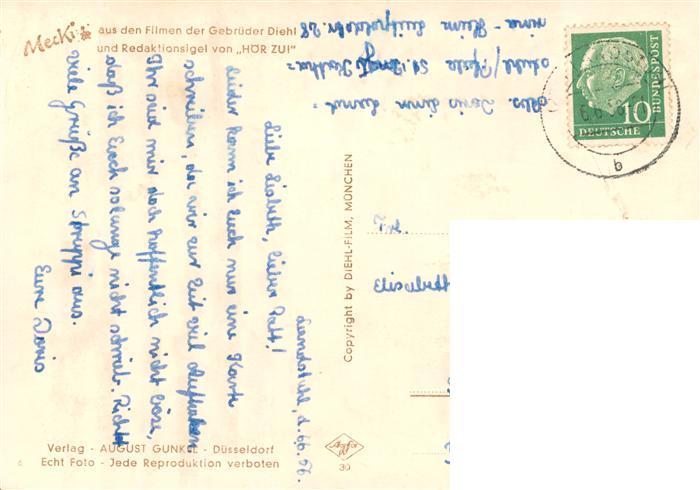 Mecki aus den Filmen der Gebrüder Diehl
und Redaktionsigel von „HÖR ZU!"
Landstuhl, d. 6.6.56.
Liebe Lisbeth, lieber Patt!
Leider kann ich Euch nur eine Karte
schreiben, da wir zur Zeit viel
Ihr seid mir doch hoffentlich nicht böse,
daß ich Euch solange nicht schrieb. Richtet
viele Grüße an Struppi aus.
Eure Doris
Abs. Doris
stuhl/Pfalz St.
Heim
Copyright by DIEHL-FILM, MÜNCHEN
Frl.
Elisabeth
10
DEUTSCHE
BUNDESPOST
b
Verlag - AUGUST GUNKEL - Düsseldorf
Echt Foto - Jede Reproduktion verboten
Agfa
30